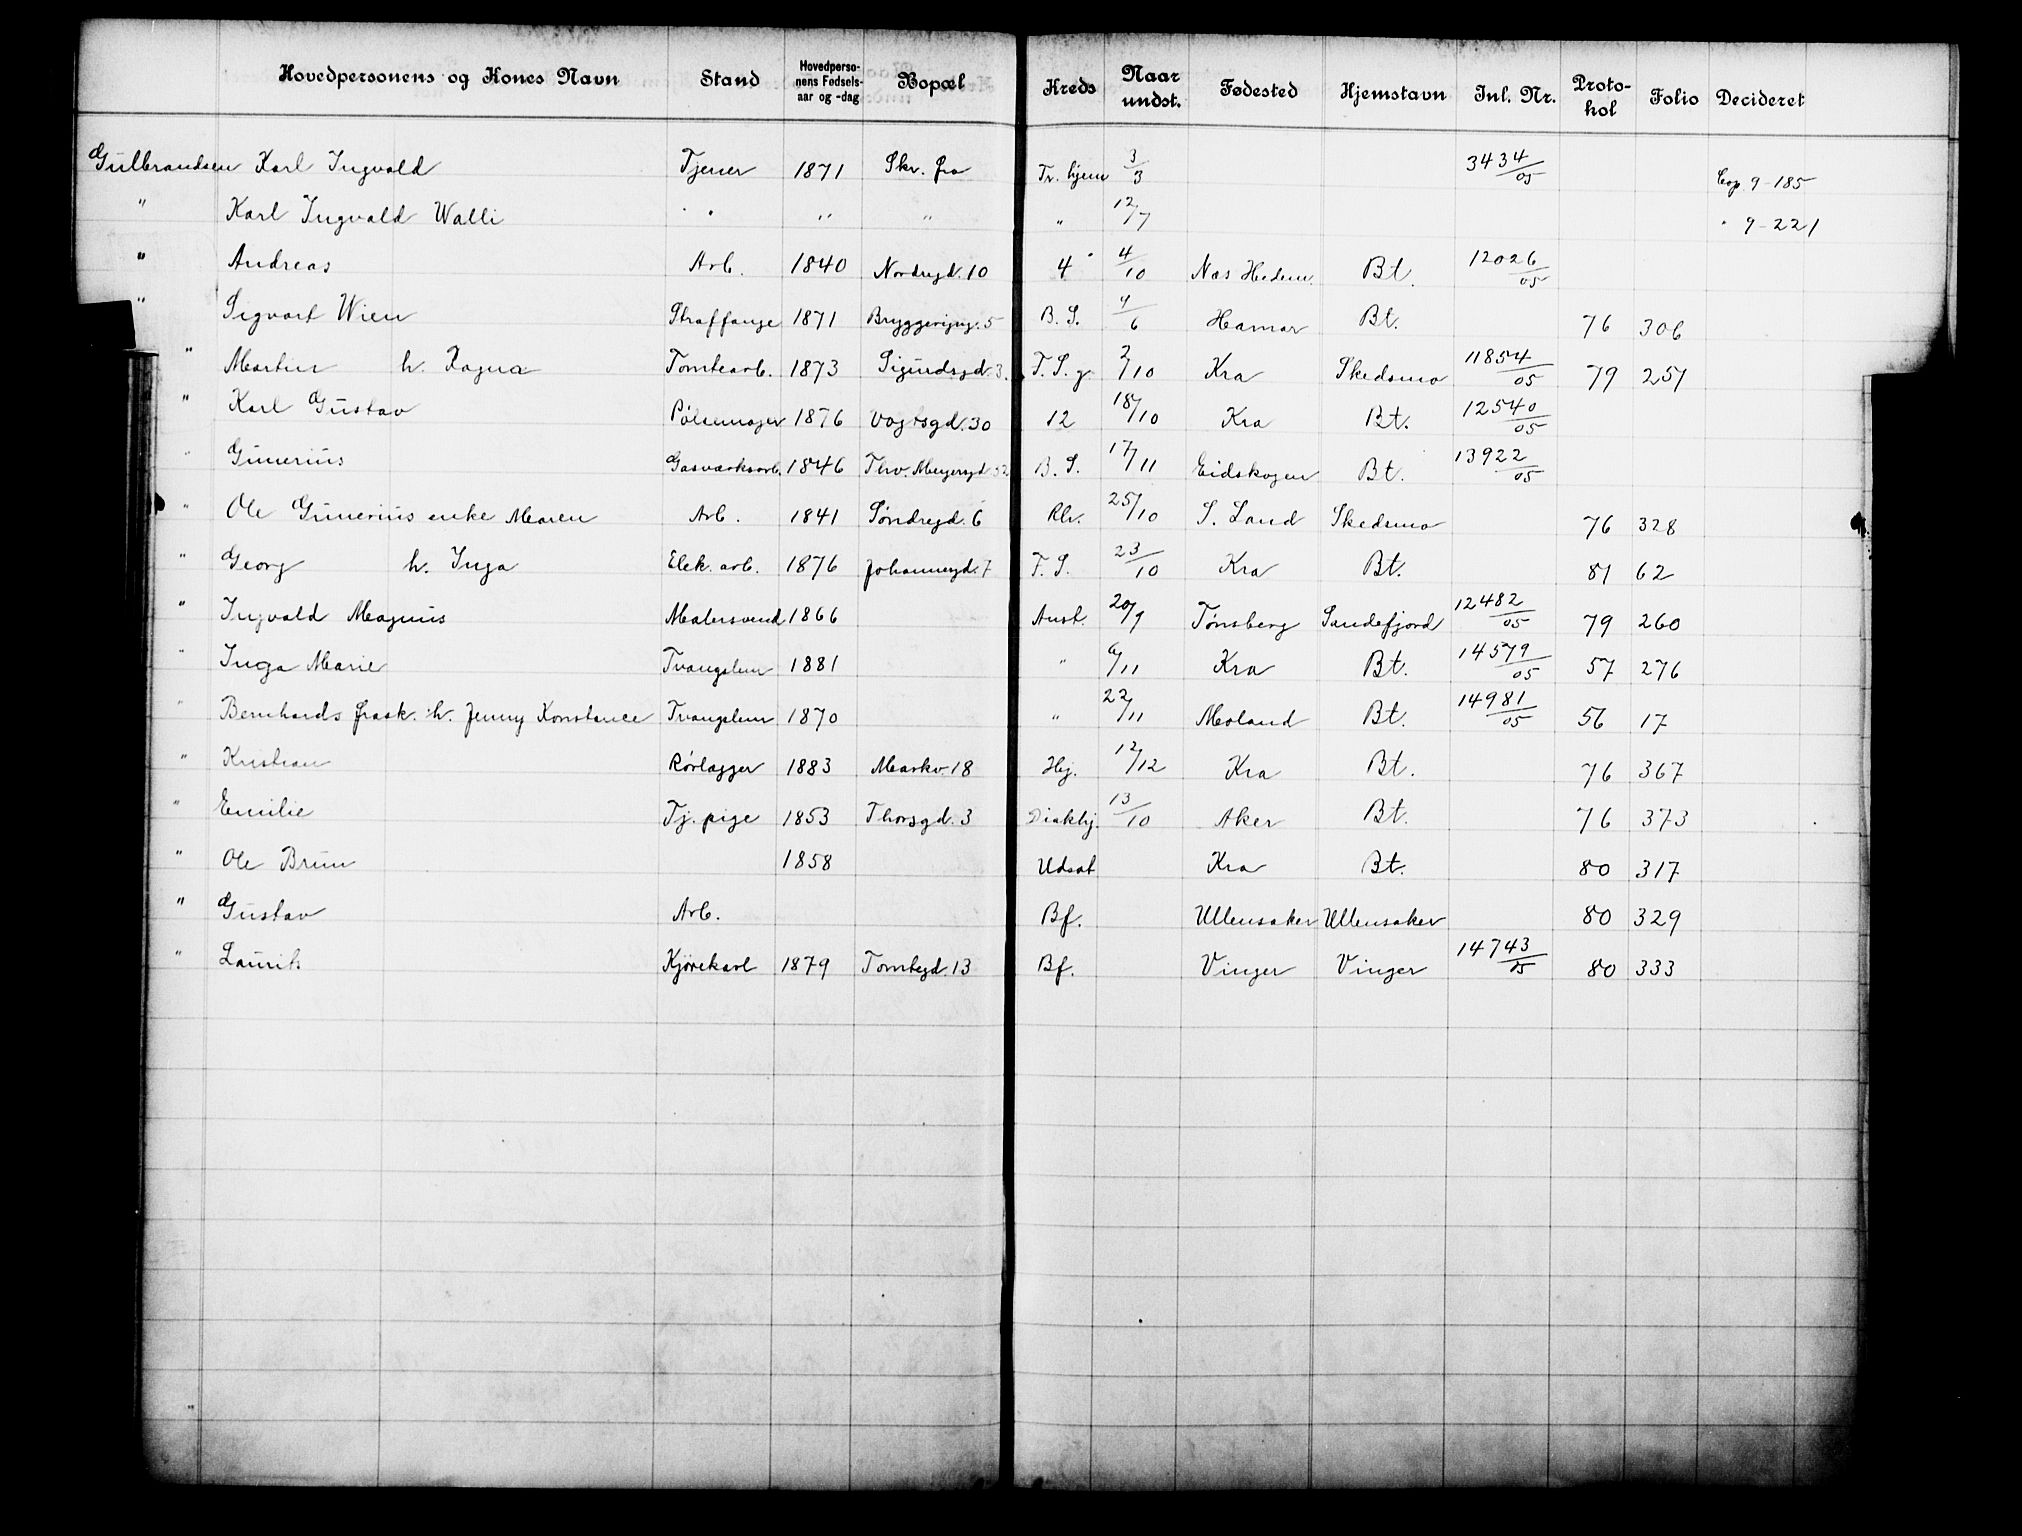 Hovedpersonens og Kones Navn Stand Hovedpersonens Fødselsaar og -dag Bopæl Kreds Naar undst. Fødested Hjemstavn Inl. Nr. Protokol Folio Decideret
Gulbrandsen Karl Ingvald Tjener 1871 Skr. fra Tr. hjem 3/3 3434/05 Cop 9-185
" Karl Ingvald Walli " " " " 12/7 " 9-221
" Andreas Arb. 1840 Nordregd. 10 4 4/10 Nas Hedem. Bt. 12026/05
" Sigvart Wien Straffange 1871 Bryggerigg. 5 B. S. 9/6 Hamar Bt. 76 306
" Martin h. Ragna Tomtearb. 1873 Sigurdsgd. 3. F. S. g 2/10 Kra Skedsmo 11854/05 79 251
" Karl Gustav Pølsemager 1876 Vogtsgd. 30 12 18/10 Kra Bt. 12540/05
" Gunerius Gasværksarb. 1846 Thv. Meyersgd 52 B. S. 17/11 Eidskogen Bt. 13922/05
" Ole Gunerius enke Maren Arb. 1841 Søndregd. 6 Rh. 25/10 S. Land Skedsmo 76 328
" Georg h. Inga Elek. arb. 1876 Johannesgd. 7 F. S. 23/10 Kra Bt. 81 62
" Ingvald Magnus Malersvend 1866 Anst. 20/9 Tønsberg Sandefjord 12482/05 79 260
" Inga Marie Tvangslem 1881 " 6/11 Kra Bt. 14579/05 57 276
" Bernhards frask. h. Jenny Konstance Tvangslem 1870 " 22/11 Moland Bt. 14981/05 56 17
" Kristian Rørlægger 1883 Markv. 18 Hj. 12/12 Kra Bt. 76 367
" Emilie Tj. pige 1853 Thorsgd. 3 Diakhj. 13/10 Aker Bt. 76 373
" Ole Brun 1858 Udsat Kra Bt. 80 317
" Gustav Arb. Bf. Ullensaker Ullensaker 80 329
" Laurits Kjørekarl 1879 Tomtegd. 13 Bf. Vinger Vinger 14743/05 80 333